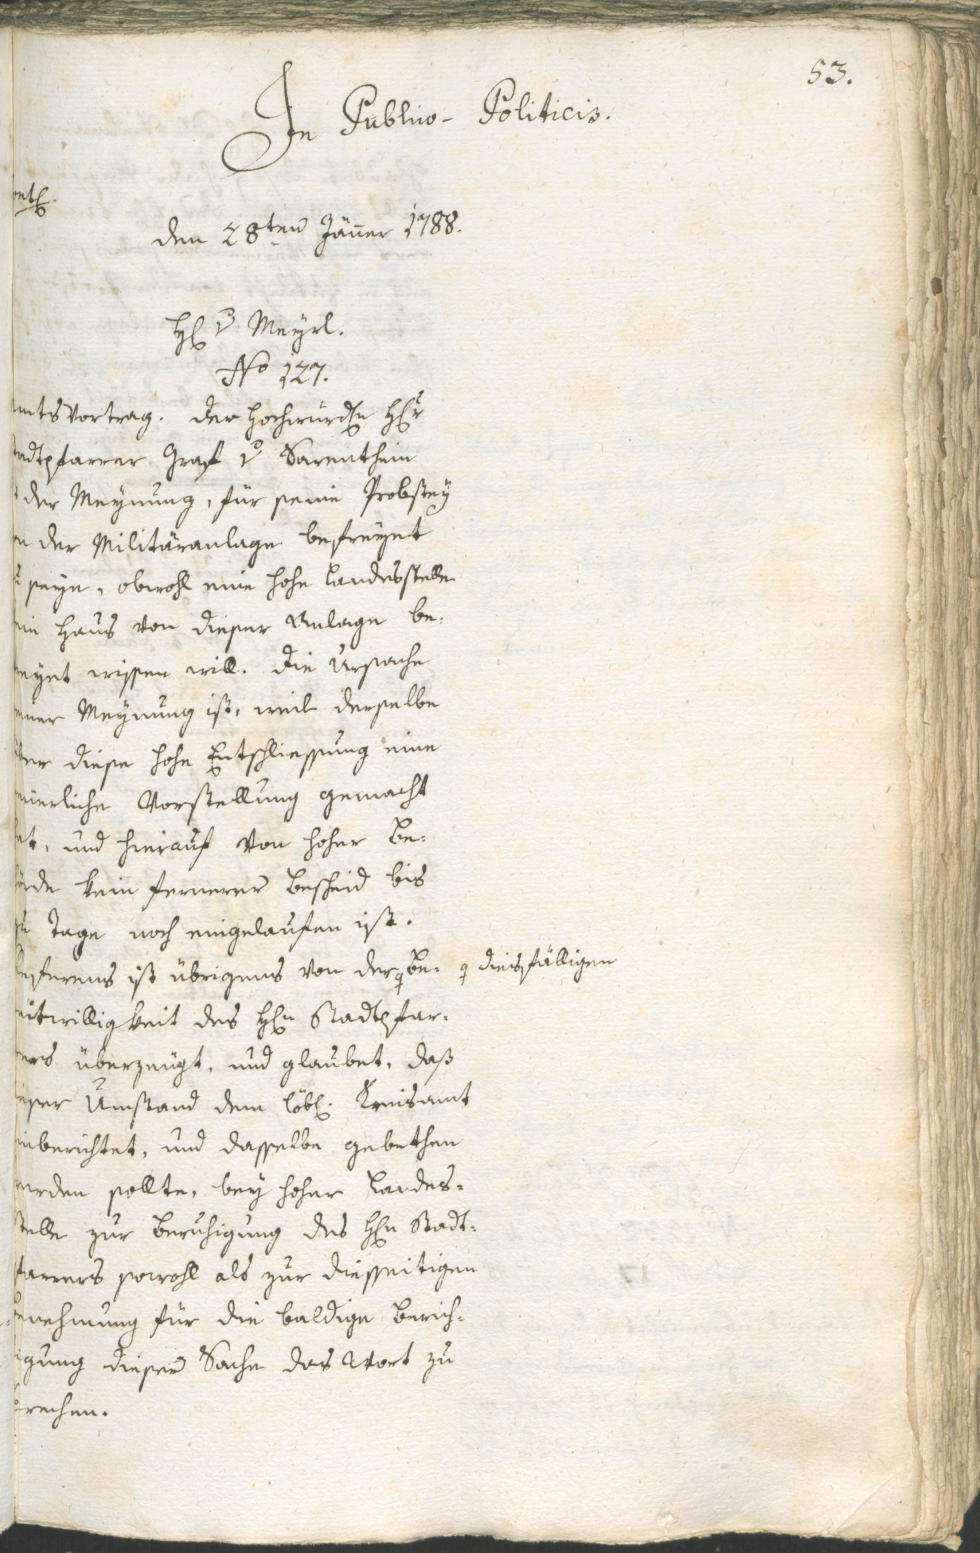 53.
In Publico-Politicis.
den 28ten Jäner 1788.
H v Meyrl.
No 127.
mtsVortrag. Der Hochwürdn Hr
tadtpfarrer Graf v Sarenthein
der Meynung, für seine Probstey
n der Militäranlage befreyet
seyn, obwohl eine hohe Landesstelle
ein Haus von dieser Anlage be-
eyet wissen will. Die Ursache
einer Meynung ist, weil derselbe
ber diese hohe Entschliessung eine
nerliche Vorstellung gemacht
at, und hierauf von hoher Be-
örde kein fernerer Bescheid bis
zu Tage noch eingelaufen ist.
Referens ist übrigens von der Be- diesfälligen
eitwilligkeit des Hn Stadtpfar-
ers überzeugt, und glaubet, daß
ieser Umstand dem löbl. Kreisamt
inberichtet, und dasselbe gebethen
werden sollte, bey hoher Landes-
telle zur Beruhigung des Hn Stadt-
farrers sowohl als zur diesseitigen
enehmung für die baldige Berich-
igung dieser Sache das Wort zu
prechen.